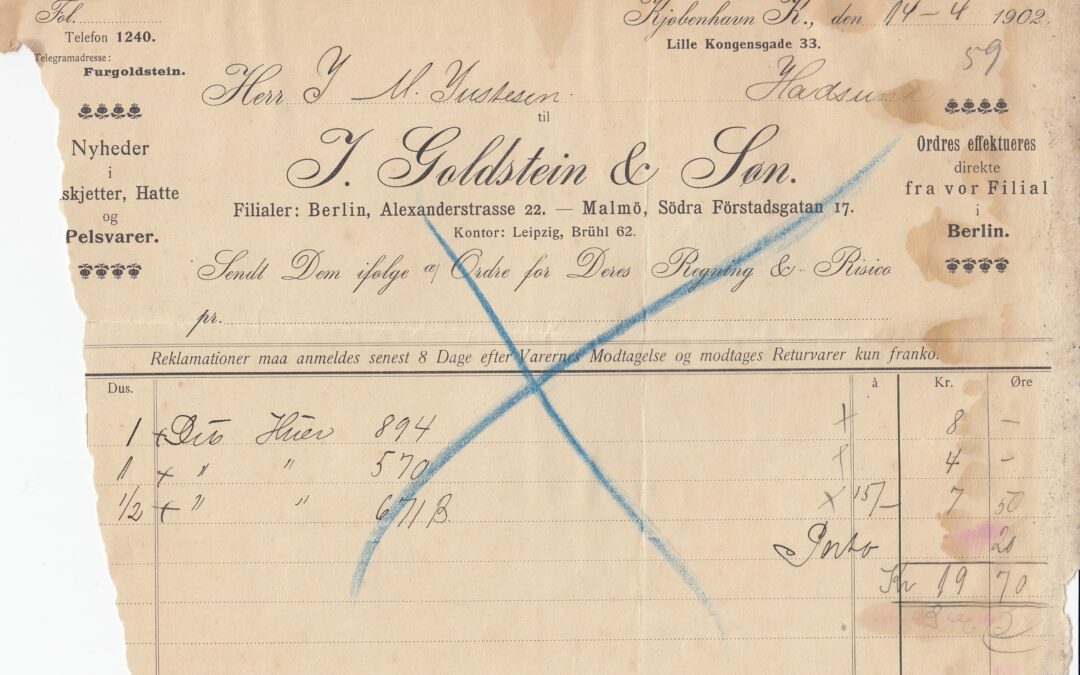 Fol.
Telefon 1240.
Telegramadresse:
Furgoldstein.
Kjøbenhavn K., den 14-4 1902.
Lille Kongensgade 33.
59
Herr J M. Justesen Hadsund
til
Nyheder
i
skjetter, Hatte
og
Pelsvarer.
J. Goldstein & Søn.
Filialer: Berlin, Alexanderstrasse 22. — Malmö, Södra Förstadsgatan 17.
Kontor: Leipzig, Brühl 62.
Ordres effektueres
direkte
fra vor Filial
i
Berlin.
Sendt Dem ifølge Ordre for Deres Regning & Risico
pr.
Reklamationer maa anmeldes senest 8 Dage efter Varernes Modtagelse og modtages Returvarer kun franko.
Dus. à Kr. Øre
1 + Dts Huer 894 + 8 -
1 + " " 570 + 4 -
1/2 + " " 671 B. x 15/- 7 50
Porto 20
Kr 19 70